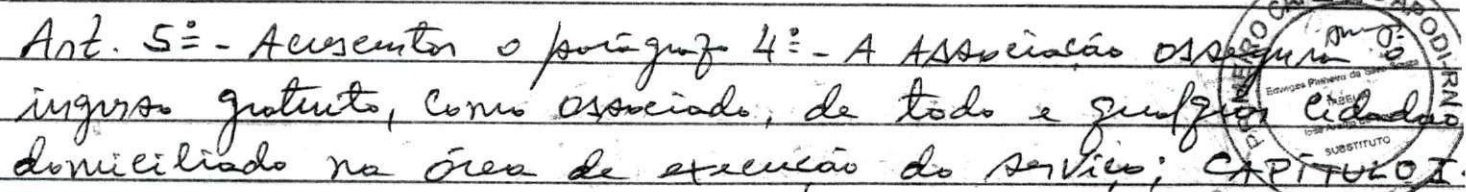 Art. 5º - Acrescentar o parágrafo 4º - A Associação assegura
ingresso gratuito, como associado, de todo e qualquer cidadão
domiciliado na área de execução do serviço; CAPÍTULO I
PRIMEIRO APODI-RN
SUBSTITUTO